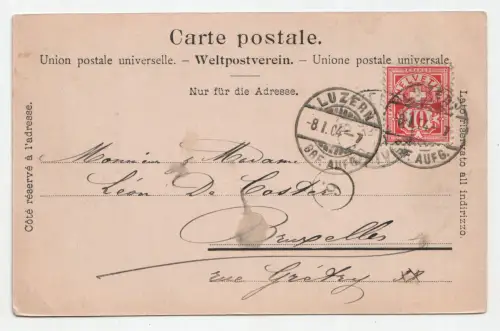 Carte postale.
Union postale universelle. – Weltpostverein. – Unione postale universale.
Nur für die Adresse.
Côté réservé à l'adresse.
Lato riservato all indirizzo.
HELVETIA
10
LUZERN
-8.I.04.-7
BRF. AUFG.
LUZERN
BRF. AUFG.
Monsieur & Madame
Léon De Coster
Bruxelles
rue Grétry